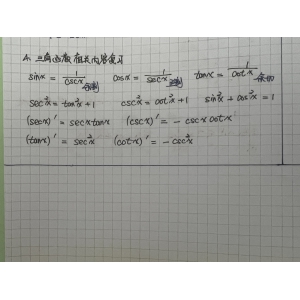 A. 三角函数相关内容复习
sinx = 1/cscx 余割 cosx = 1/secx 正割 tanx = 1/cotx 余切
sec²x = tan²x + 1 csc²x = cot²x + 1 sin²x + cos²x = 1
(secx)' = secx tanx (cscx)' = - cscx cotx
(tanx)' = sec²x (cotx)' = - csc²x